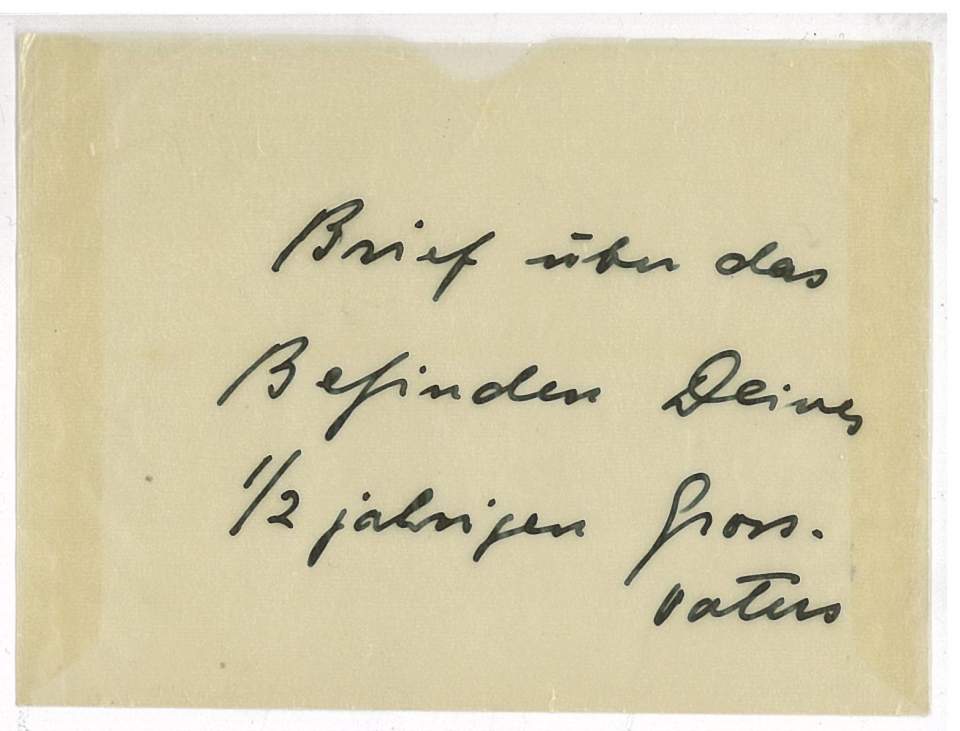 Brief über das
Befinden Deines
1/2 jahrigen Gross-
vaters